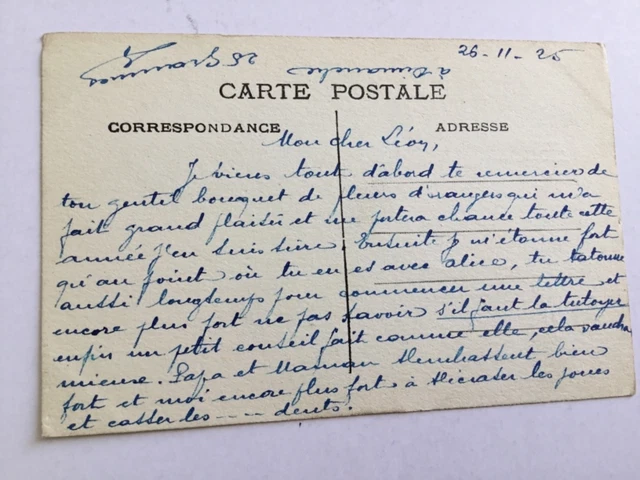 26 - 11 - 25
à Dimanche
CARTE POSTALE
CORRESPONDANCE
ADRESSE
Mon cher Léon,
Je viens tout d'abord te remercier de
ton gentil bouquet de fleurs d'orangers qui m'a
fait grand plaisir et me portera chance toute cette
année j'en suis sûre. Ensuite je m'étonne fort
qu'au point où tu en es avec alice, tu tatonne
aussi longtemps pour commencer une lettre et
encore plus fort ne pas savoir s'il faut la tutoyer
enfin un petit conseil fait comme elle, cela vaudra
mieux. Papa et Maman t'embrassent bien
fort et moi encore plus fort à t'écraser les joues
et casser les - - - - dents.